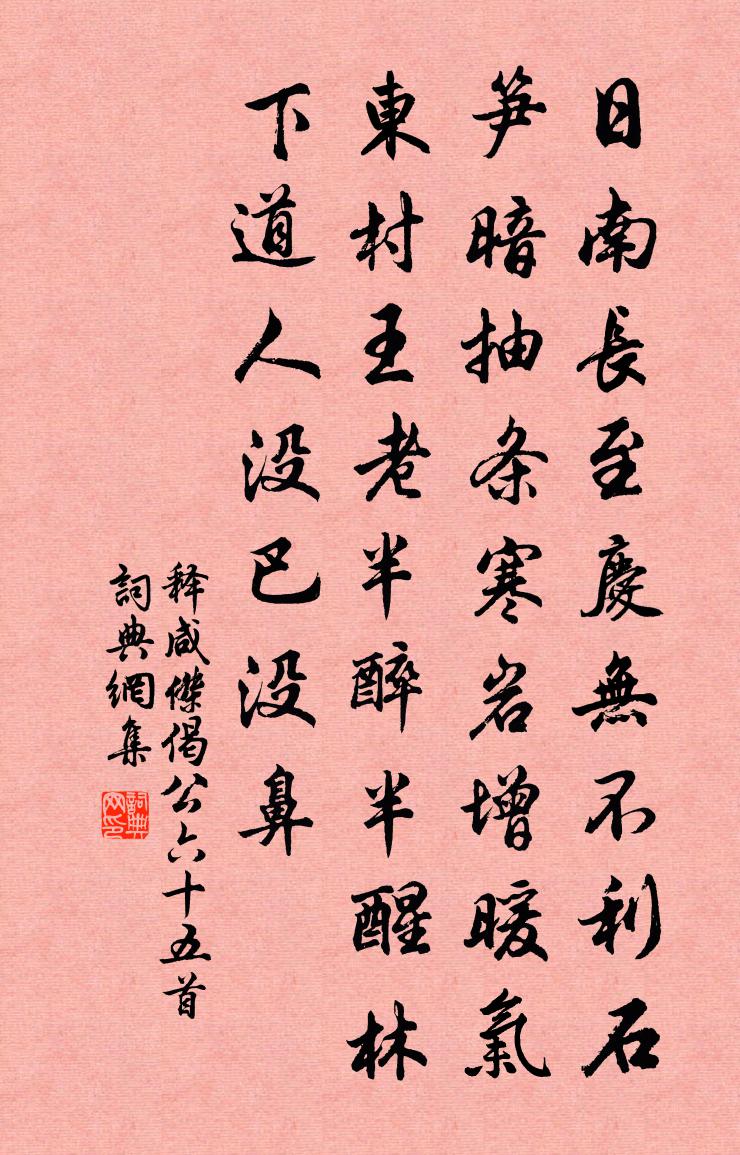 日南長至慶無不利石
笋暗抽条寒岩增暖氣
東村王老半醉半醒林
下道人没巴没鼻
释咸傑偈公六十五首
詞典網集
詞典网印